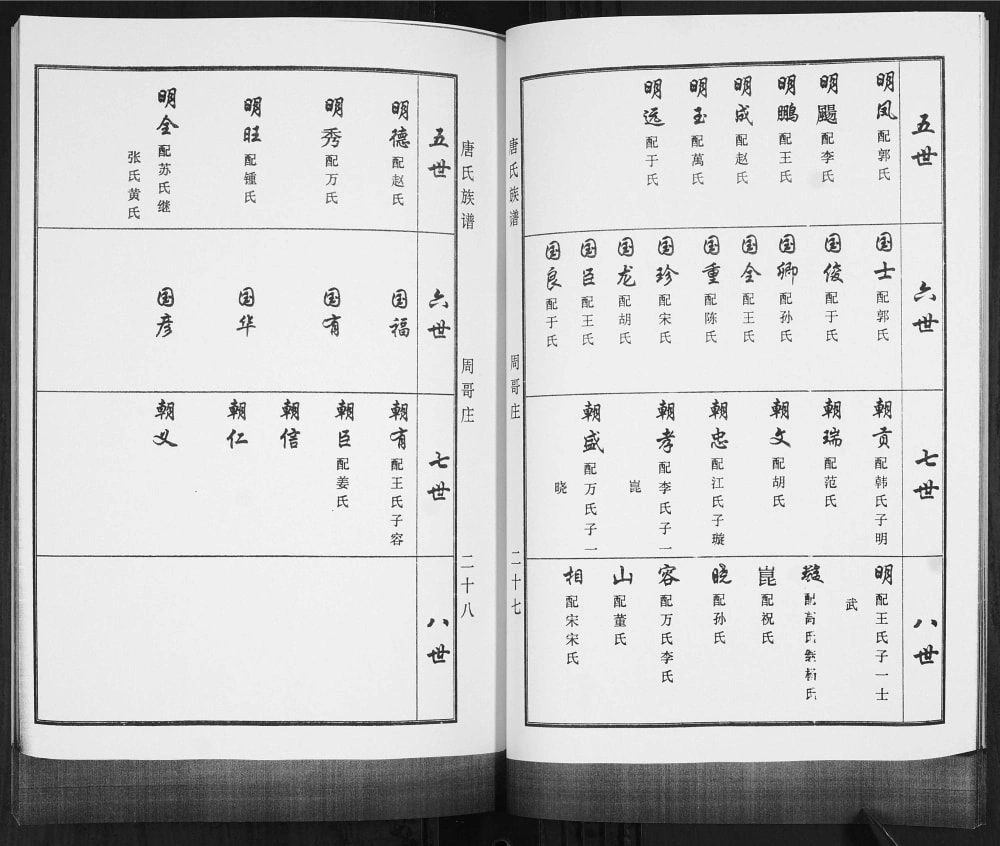 五世
明凤 配郭氏
明飏 配李氏
明鹏 配王氏
明成 配赵氏
明玉 配萬氏
明远 配于氏
六世
国士 配郭氏
国俊 配于氏
国卿 配孙氏
国全 配王氏
国重 配陈氏
国珍 配宋氏
国龙 配胡氏
国臣 配王氏
国良 配于氏
七世
朝贡 配韩氏子明
朝瑞 配范氏
朝文 配胡氏
朝忠 配江氏子璇
朝孝 配李氏子一
崑
朝盛 配万氏子一
晓
八世
明 配王氏子一士
武
璇 配高氏继杨氏
崑 配祝氏
晓 配孙氏
容 配万氏李氏
山 配董氏
相 配宋宋氏
唐氏族谱
周哥庄
二十七
唐氏族谱
周哥庄
二十八
五世
明德 配赵氏
明秀 配万氏
明旺 配锺氏
明全 配苏氏继
张氏黄氏
六世
国福
国有
国华
国彦
七世
朝有 配王氏子容
朝臣 配姜氏
朝信
朝仁
朝义
八世